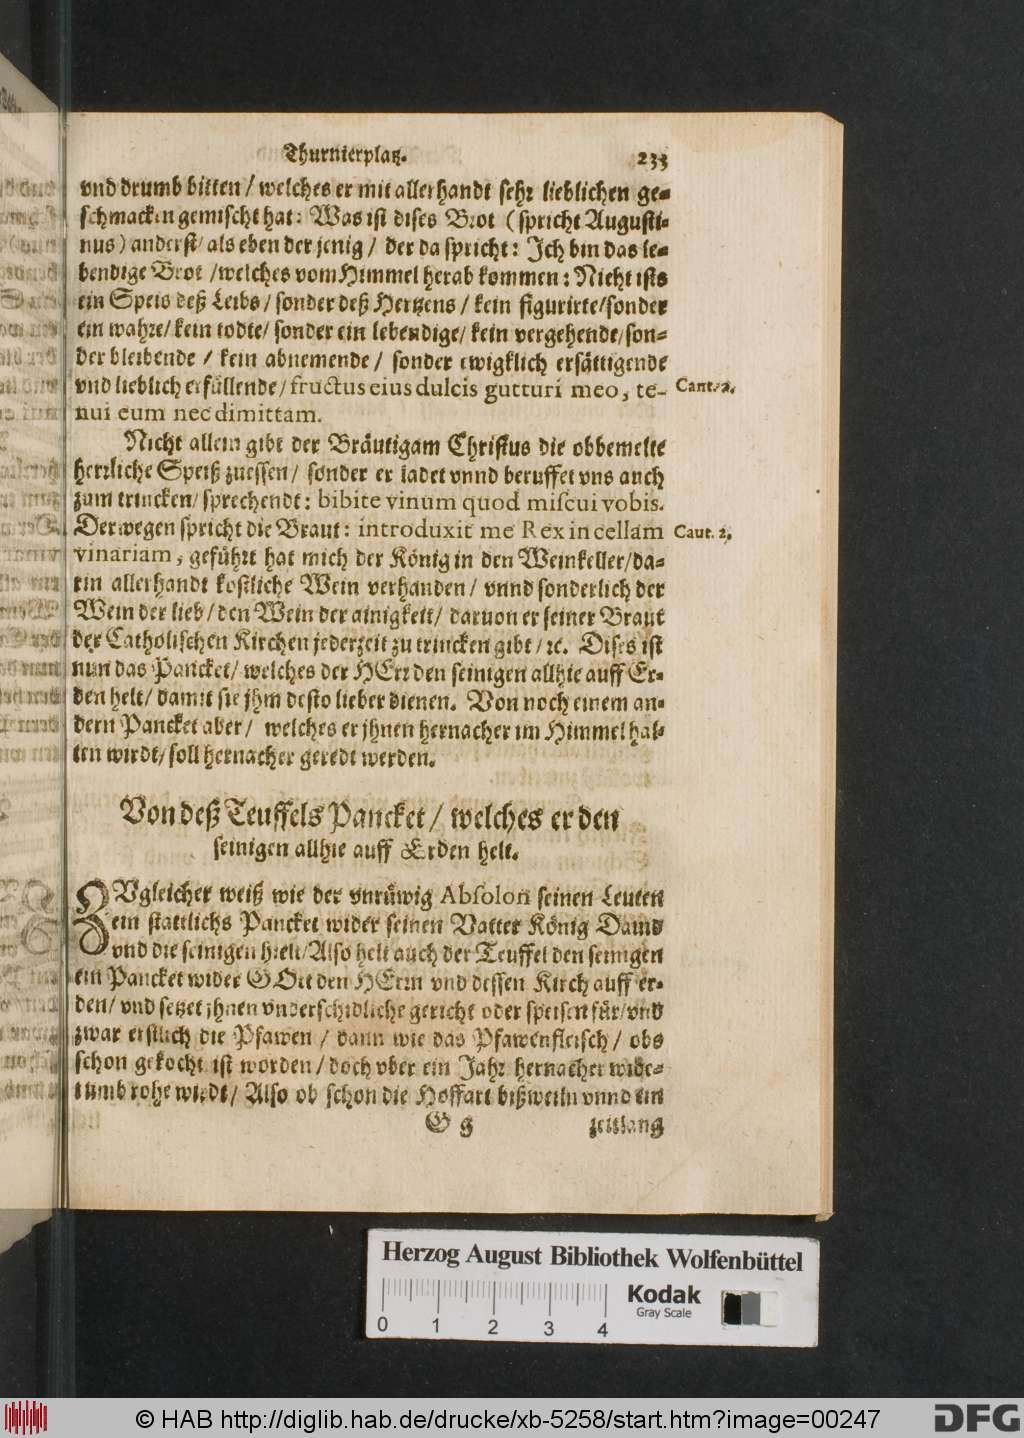 Thurnierplatz. 233
vnd drumb bitten / welches er mit allerhandt sehr lieblichen ge-
schmacken gemischt hat: Was ist dises Brot (spricht Augusti-
nus) anderst/ als eben der jenig / der da spricht: Ich bin das le-
bendige Brot /welches vom Himmel herab kommen: Nicht ists
ein Speis deß Leibs / sonder deß Hertzens / kein figurirte/sonder
ein wahre/ kein todte/ sonder ein lebendige/ kein vergehende/son-
der bleibende / kein abnemende / sonder ewigklich ersättigende
vnd lieblich erfüllende / fructus eius dulcis gutturi meo, te- Cant. 2.
nui eum nec dimittam.
Nicht allein gibt der Bräutigam Christus die obbemelte
herrliche Speiß zuessen / sonder er ladet vnnd beruffet vns auch
zum trincken / sprechendt: bibite vinum quod miscui vobis.
Derwegen spricht die Braut: introduxit me Rex in cellam Caut. 2.
vinariam, geführt hat mich der König in den Weinkeller/da-
rin allerhandt kostliche Wein verhanden / vnnd sonderlich der
Wein der lieb / den Wein der ainigkeit / daruon er seiner Braut
der Catholischen Kirchen jederzeit zu trincken gibt / ꝛc. Dises ist
nun das Pancket/ welches der HErr den seinigen allhie auff Er-
den helt / damit sie jhm desto lieber dienen. Von noch einem an-
dern Pancket aber / welches er jhnen hernacher im Himmel hal-
ten wirdt/ soll hernacher geredt werden.
Von deß Teuffels Pancket / welches er den
seinigen allhie auff Erden helt.
ZVgleicher weiß wie der vnrüwig Absolon seinen Leuten
ein stattlichs Pancket wider seinen Vatter König Dauid
vnd die seinigen hielt /Also helt auch der Teuffel den seinigen
ein Pancket wider GOtt den HErrn vnd dessen Kirch auff er-
den / vnd setzet jhnen vnderschidliche gericht oder speisen für/vnd
zwar erstlich die Pfawen / dann wie das Pfawenfleisch / obs
schon gekocht ist worden / doch vber ein Jahr hernacher wide-
rumb rohe wirdt / Also ob schon die Hoffart bißweiln vnnd ein
G g zeitlang
Herzog August Bibliothek Wolfenbüttel
Kodak
Gray Scale
0 1 2 3 4
© HAB http://diglib.hab.de/drucke/xb-5258/start.htm?image=00247
DFG